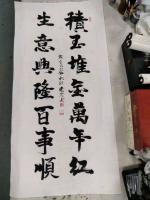 積玉堆金萬年紅
生意興隆百事順